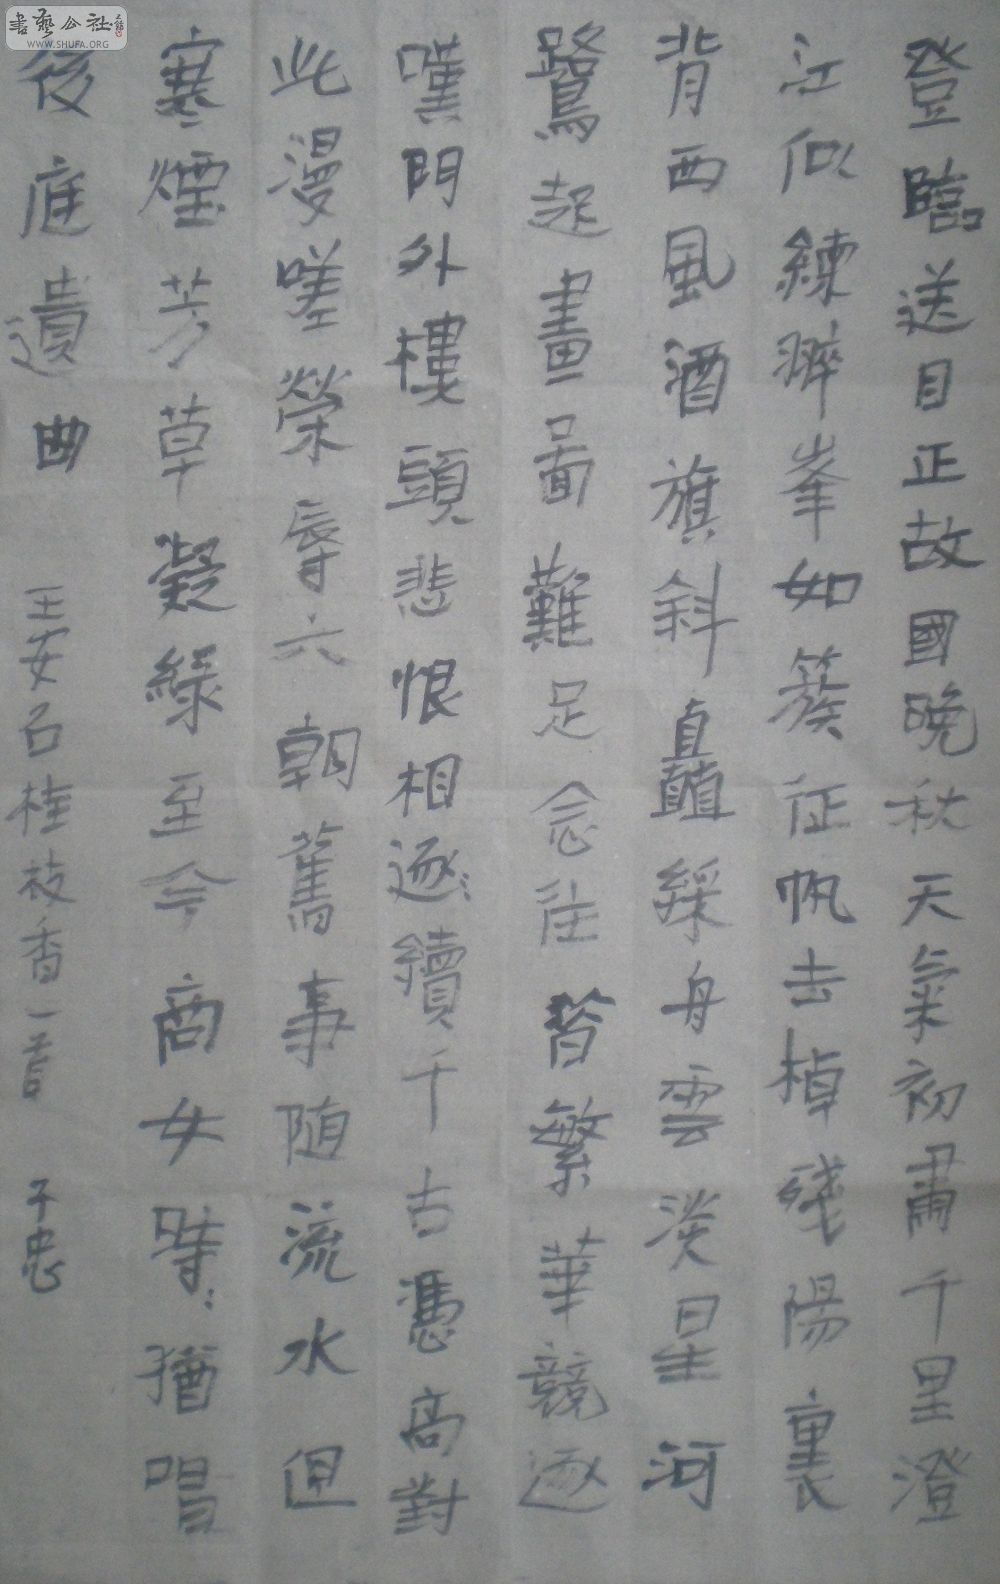 登臨送目正故國晚秋天氣初肅千里澄
江似練翠峯如簇征帆去棹殘陽裏
背西風酒旗斜矗綵舟雲淡星河
鷺起畫圖難足念往昔繁華競逐
嘆門外樓頭悲恨相逐續千古憑高對
此漫嗟榮辱六朝舊事随流水但
寒煙芳草凝綠至今商女時時猶唱
後庭遺曲
王安石桂枝香一首 子忠
書藝公社
WWW.SHUFA.ORG